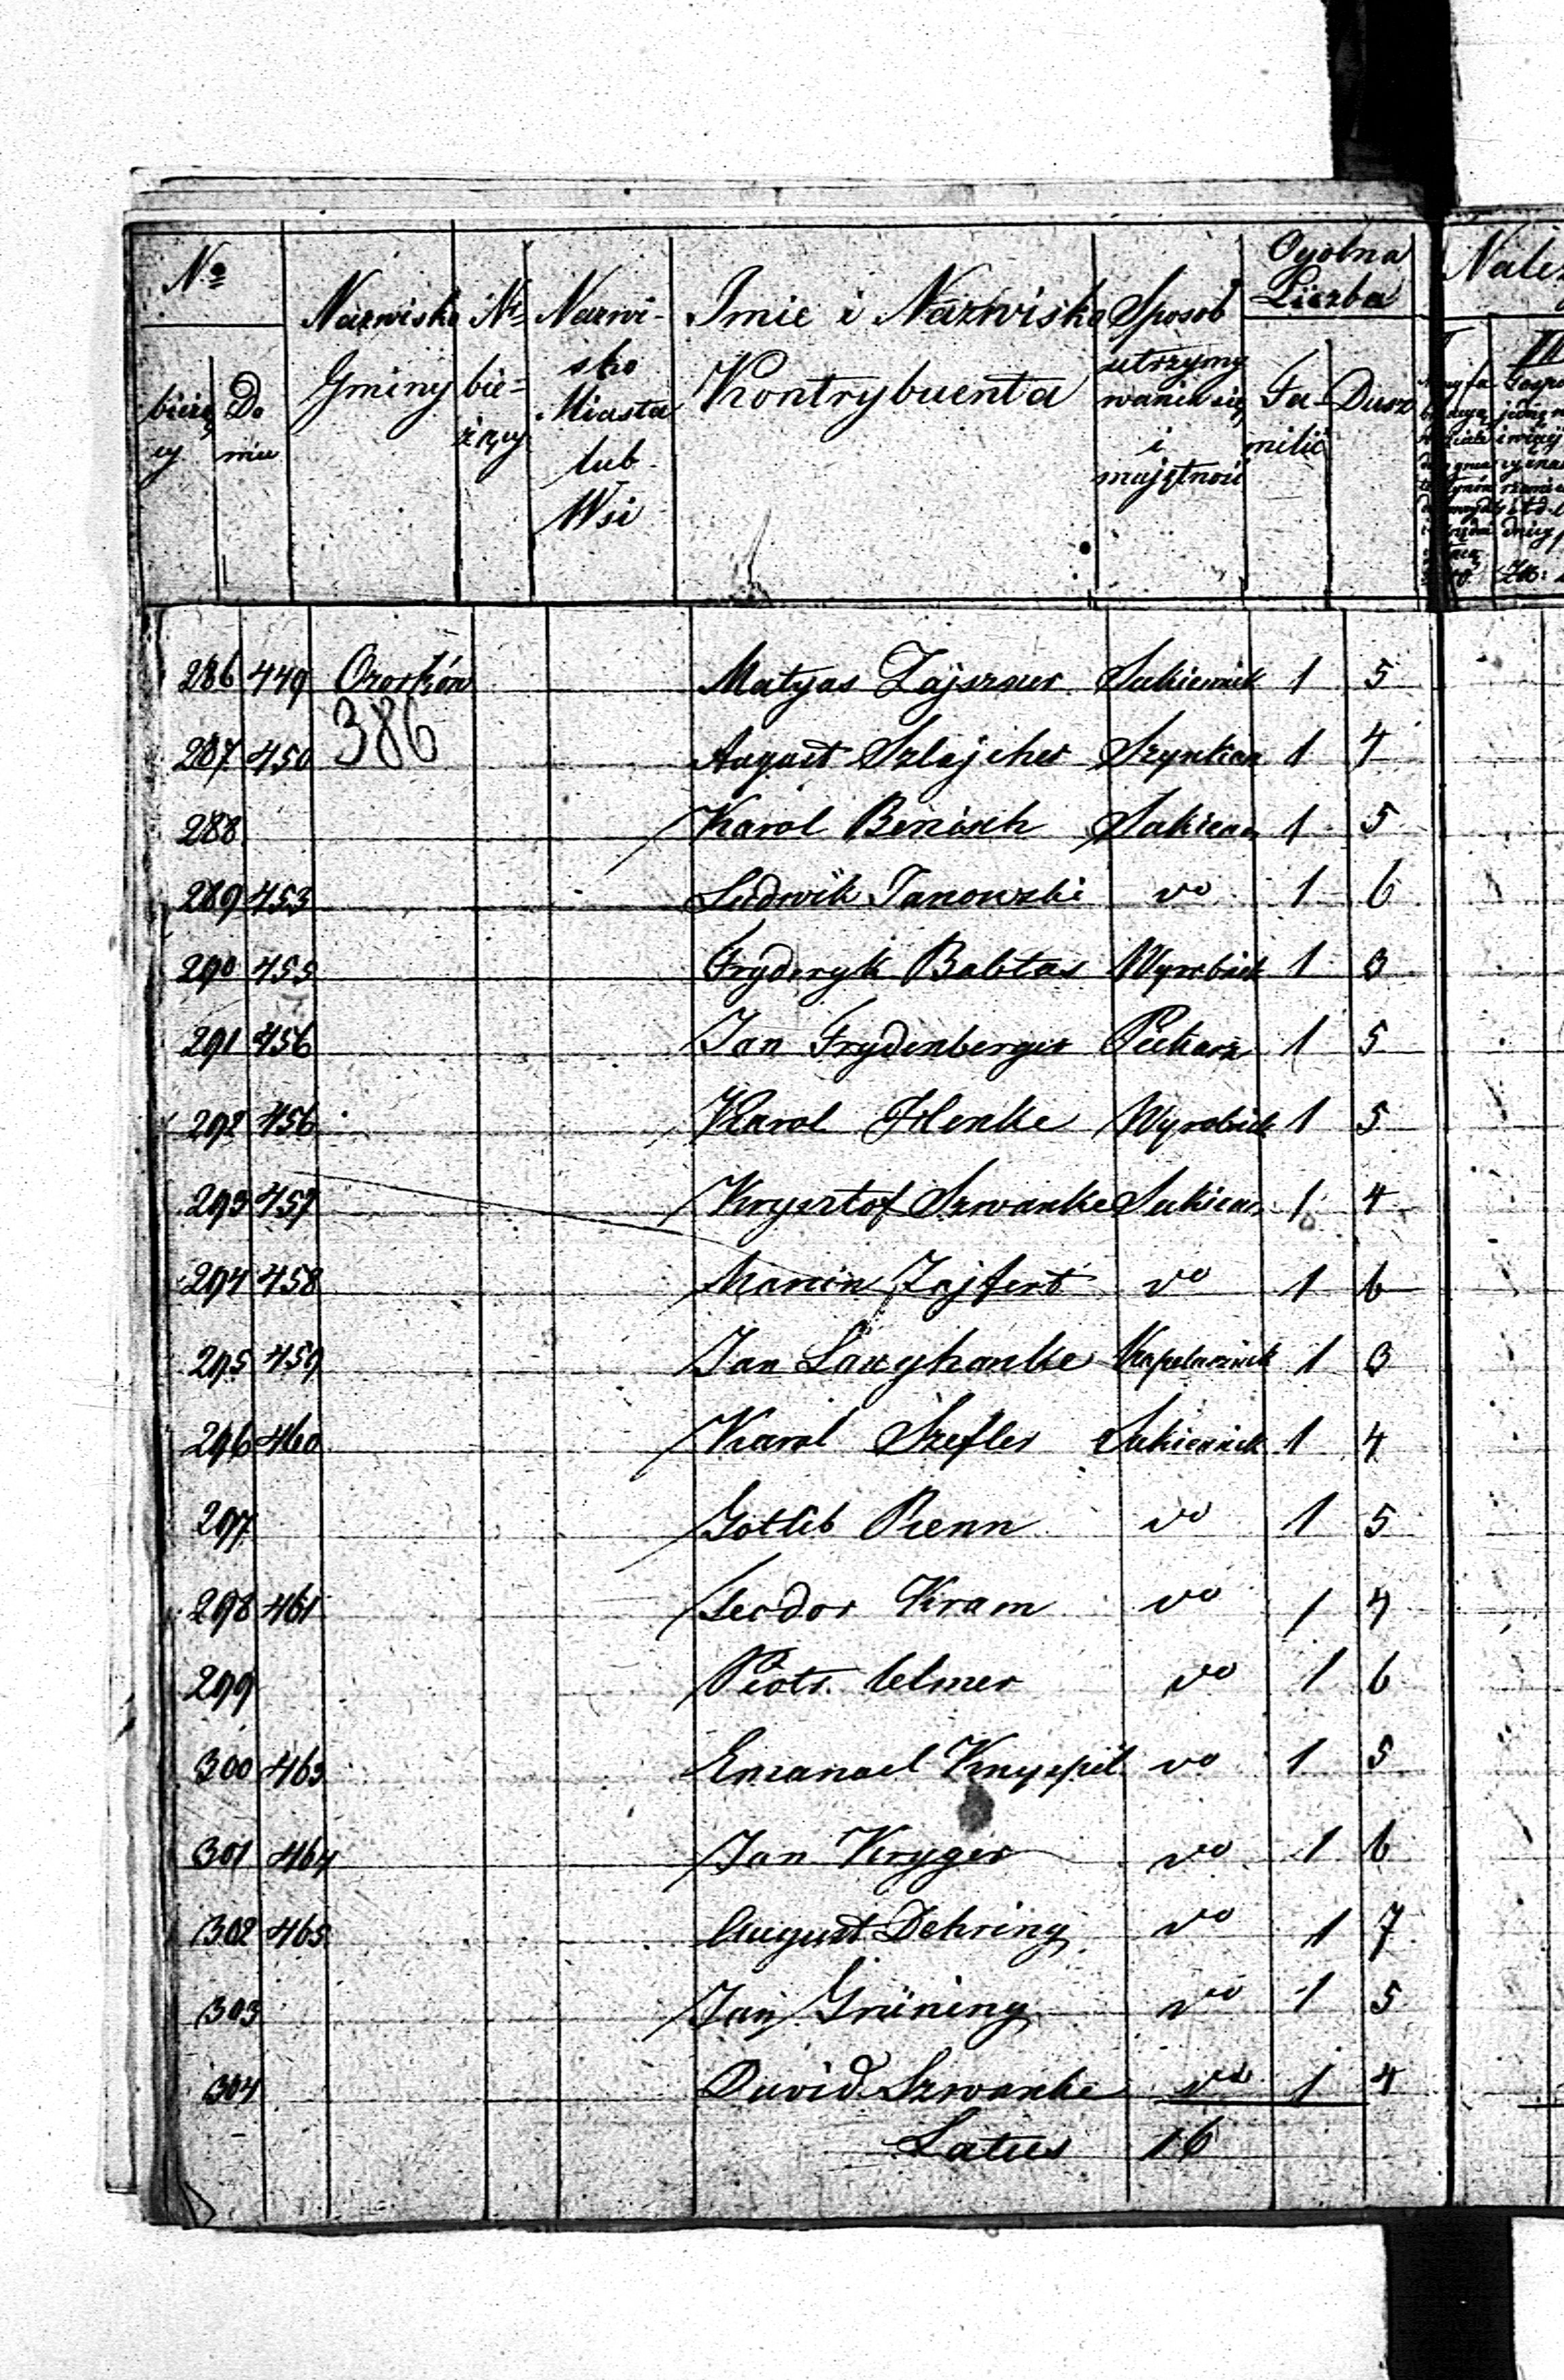 №
bieżący
Domu
Nazwisko Gminy
№ bieżący
Nazwisko Miasta lub Wsi
Imie i Nazwisko Kontrybuenta
Sposob utrzymywania się i majętność
Ogolna Liczba
Familii
Dusz
286 449 Ozorków Matyas Zajszner Sukiennik 1 5
386
287 450 August Szlajcher Szynkarz 1 4
288 Karol Benisch Sukien 1 5
289 453 Ludwik Janowski vo 1 6
290 455 Fryderyk Babtas Wyrobnik 1 3
291 456 Jan Frydenberger Piekarz 1 5
292 456 Karol Henke Wyrobnik 1 5
293 457 Krysztof Szwanke Sukien 1 4
294 458 Marcin Zajfert vo 1 6
295 459 Jan Kapelusznik 1 3
296 460 Karol Szefler Sukiennik 1 4
297 Gotlib Renn vo 1 5
298 461 Teodor Kram vo 1 4
299 Piotr Ulmer vo 1 6
300 463 Emanael vo 1 5
301 464 Jan Kryger vo 1 6
302 465 August Dehring vo 1 7
303 Jan Grüning vo 1 5
304 David Szwanke vo 1 4
Latus 16